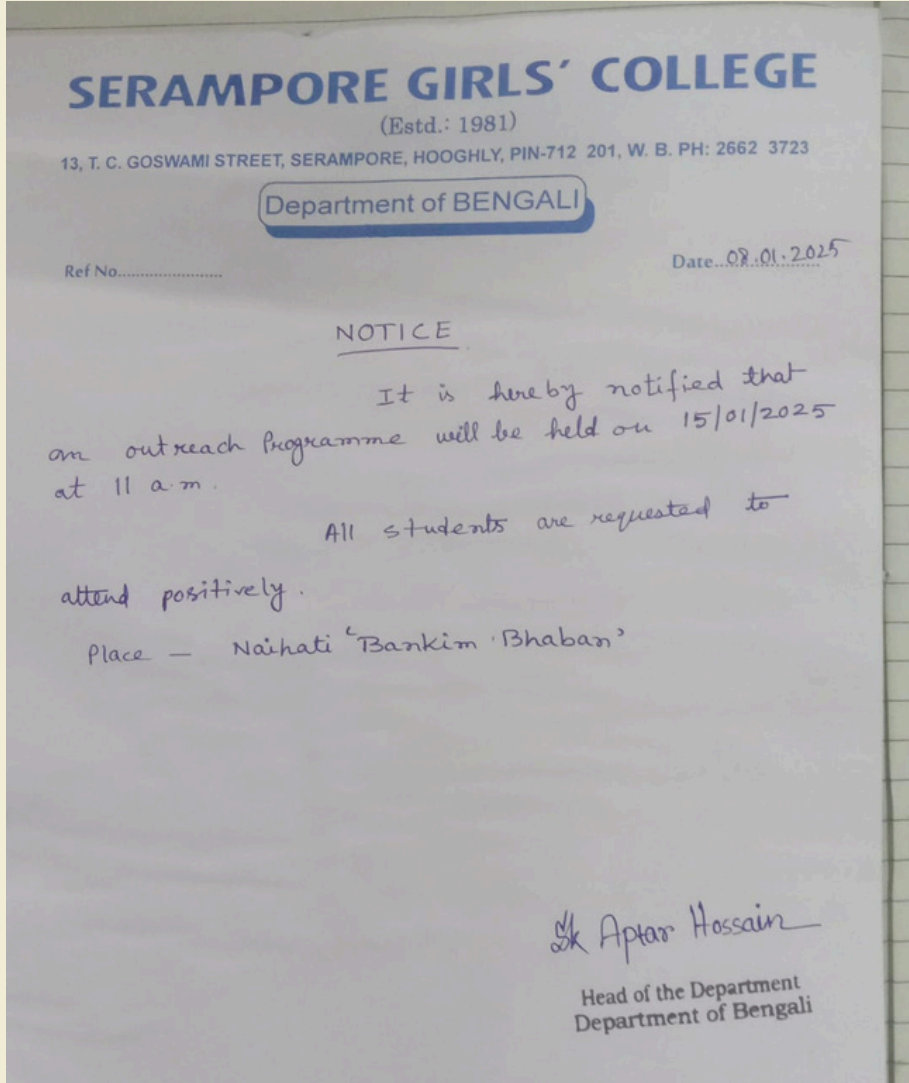 SERAMPORE GIRLS´ COLLEGE
(Estd.: 1981)
13, T. C. GOSWAMI STREET, SERAMPORE, HOOGHLY, PIN-712 201, W. B. PH: 2662 3723
Department of BENGALI
Ref No........................
Date..08.01.2025
NOTICE
It is hereby notified that
an outreach Programme will be held on 15/01/2025
at 11 a.m.
All students are requested to
attend positively.
Place — Naihati ‘Bankim Bhaban’
Sk Aptar Hossain
Head of the Department
Department of Bengali